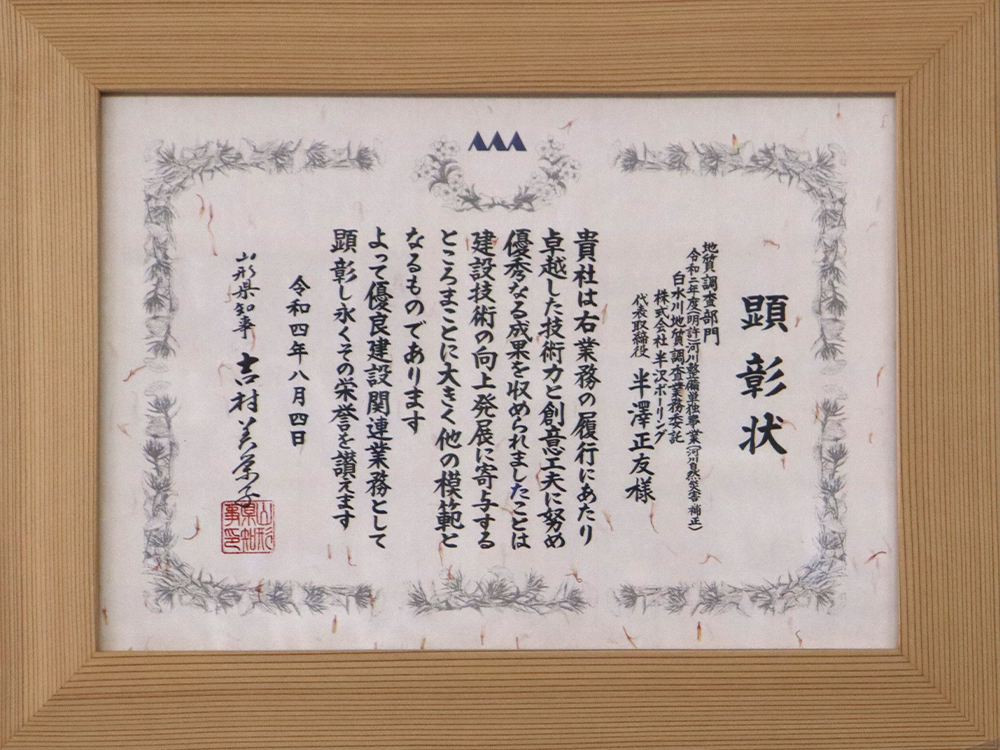 顕彰状
地質調査部門
令和二年度(明許)河川整備単独事業(河川自然災害 補正)
白水川地質調査業務委託
株式会社 半沢ボーリング
代表取締役 半澤正友様
貴社は右業務の履行にあたり
卓越した技術力と創意工夫に努め
優秀なる成果を収められましたことは
建設技術の向上発展に寄与する
ところまことに大きく他の模範と
なるものであります
よって優良建設関連業務として
顕彰し永くその栄誉を讃えます
令和四年八月四日
山形県知事 吉村美栄子
山形
県知
事印